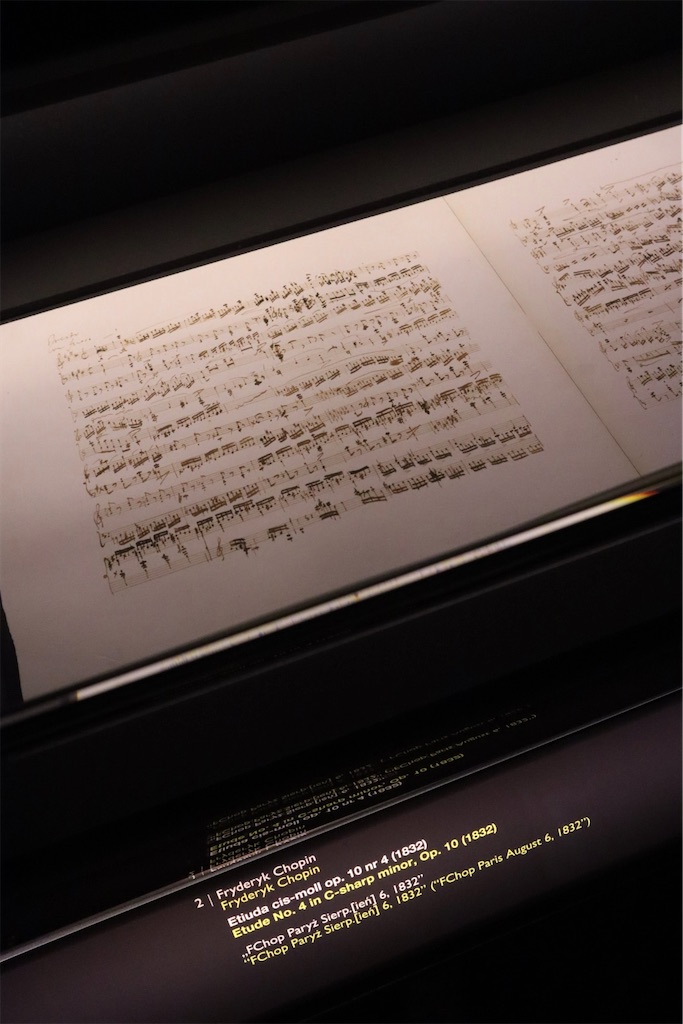 Presto
2 | Fryderyk Chopin
Fryderyk Chopin
Etiuda cis-moll op. 10 nr 4 (1832)
Etude No. 4 in C-sharp minor, Op. 10 (1832)
„FChop Paryż Sierp.[ień] 6, 1832”
“FChop Paryż Sierp.[ień] 6, 1832” (“FChop Paris August 6, 1832”)